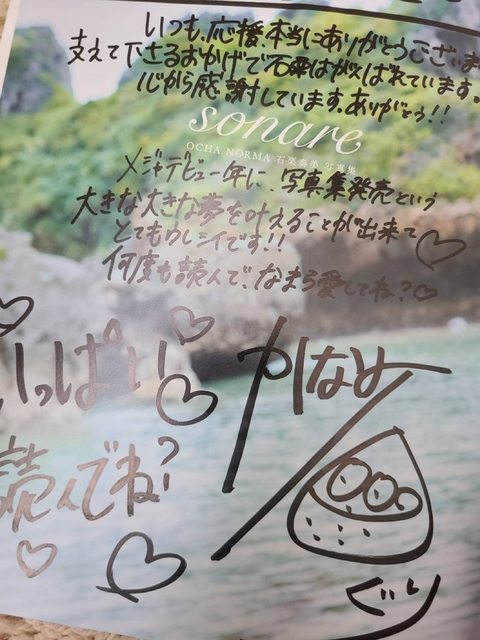 いつも、応援、本当にありがとうございま
支えて下さるおかげで石栗はがんばれています。
心から感謝しています。ありがとう!!
sonare
OCHA NORMA 石栗奏美 写真集
メジャデビュー1年に、写真集発売という
大きな大きな夢を叶えることが出来て
とてもウレシイです!!
何度も読んで、なまら愛してね?♡
いっぱい
読んでね?
かなめ
ぐり